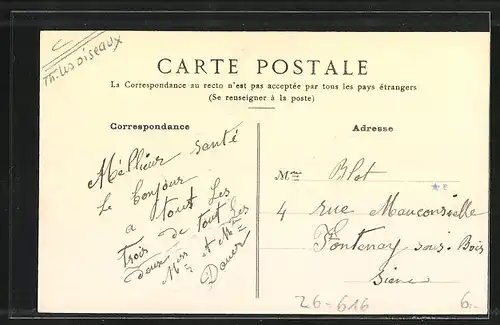 Th. les oiseaux
CARTE POSTALE
La Correspondance au recto n'est pas acceptée par tous les pays étrangers
(Se renseigner à la poste)
Correspondance
Adresse
Méllieur santé
le bonjour
a tout les
trois de tout les
deux Mr et Mme
Mme Blot
4 rue Mauconseille
Fontenay sous-Bois
Seine
26-616
6.-